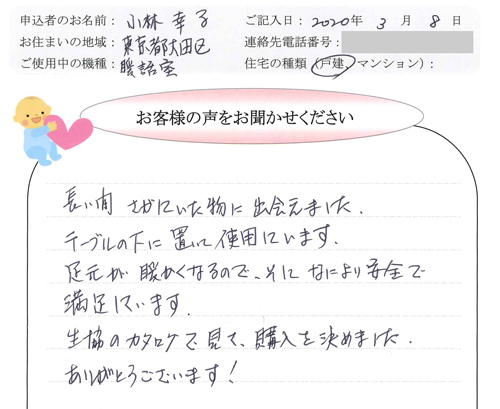 申込者のお名前： 小林 幸子 ご記入日：2020年 3月 8日
お住まいの地域： 東京都大田区 連絡先電話番号：
ご使用中の機種： 暖話室 住宅の種類（戸建、マンション）：
お客様の声をお聞かせください
長い間 さがしていた物に 出会えました.
テーブルの下に 置いて 使用しています.
足元が 暖かくなるので、そしてなにより安全で
満足しています.
生協のカタログで見て、購入を決めました.
ありがとうございます！